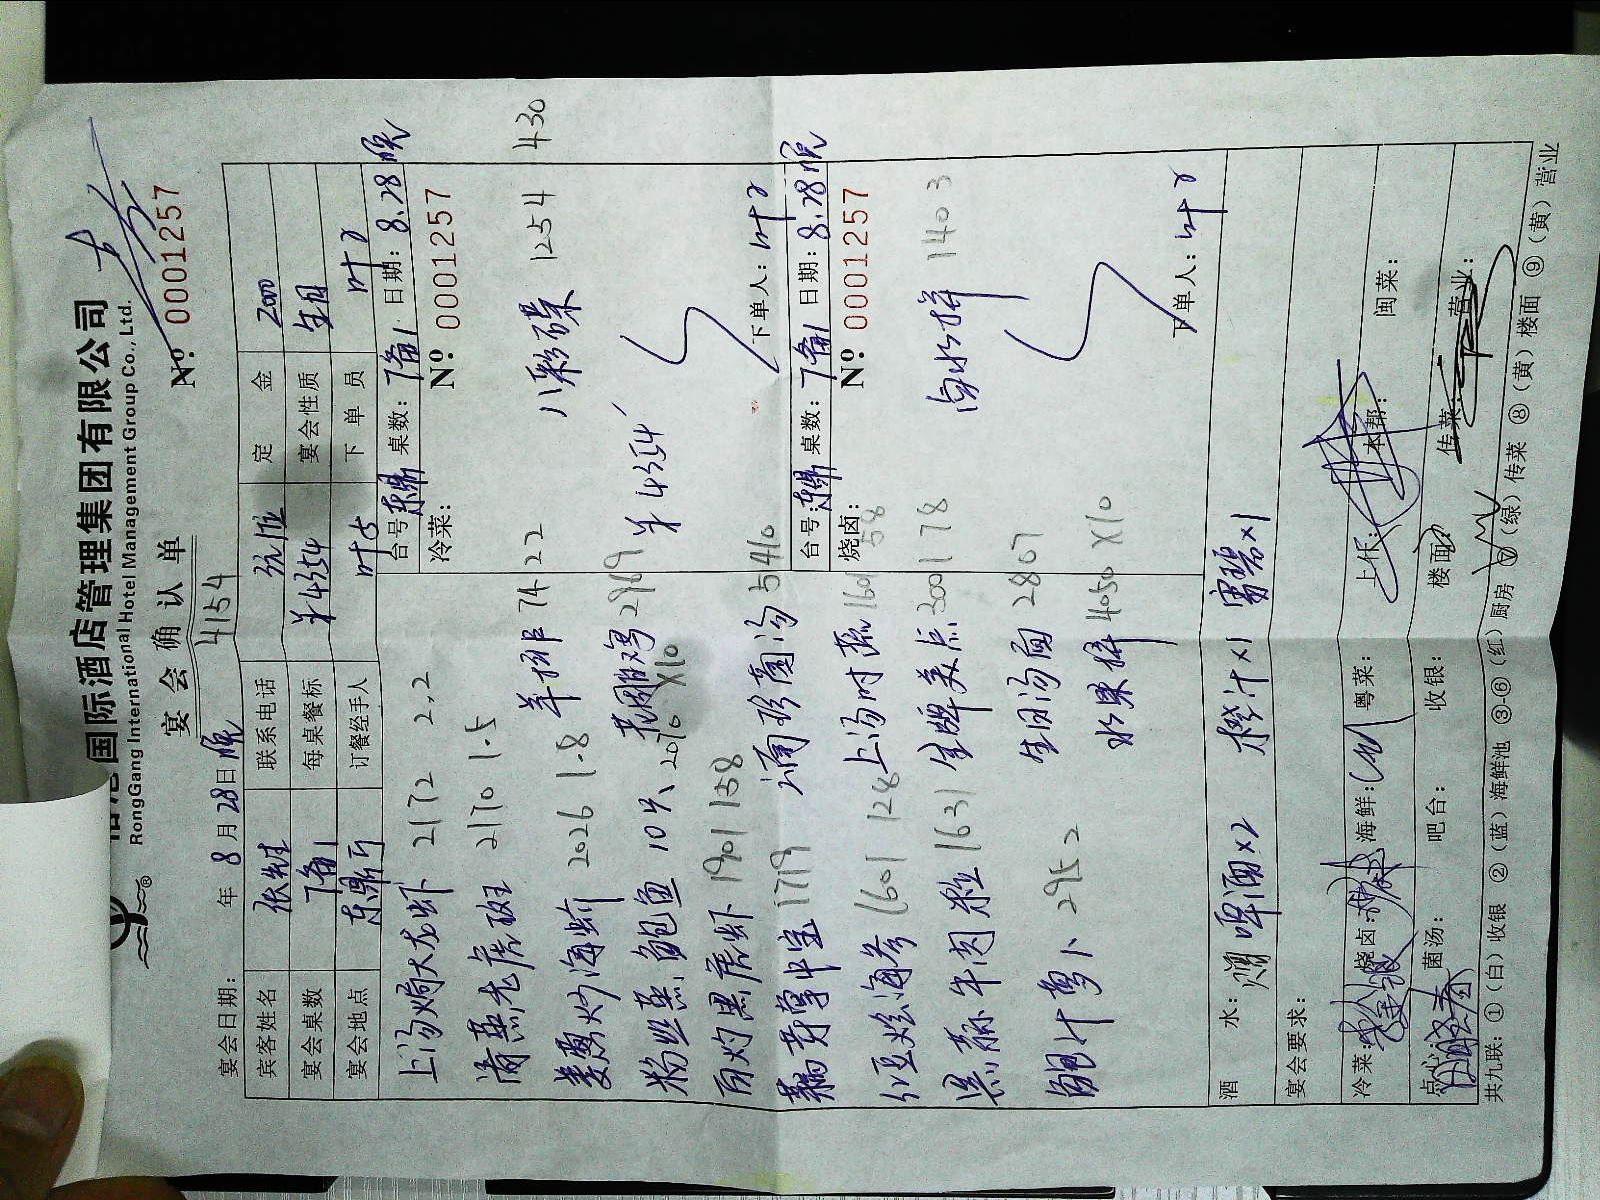 国际酒店管理集团有限公司
RongGang International Hotel Management Group Co., Ltd.
宴会确认单
№: 0001257
宴会日期: 年 8月28日晚 4154
宾客姓名 张先生 联系电话 定金 2000
宴会桌数 7备1 每桌餐标 ¥4354 宴会性质 生日
宴会地点 东鼎厅 订餐经手人 叶 下单员 叶
台号: 东鼎 桌数: 7备1 日期: 8.28晚
冷菜: № 0001257
八彩碟 1254 430
¥4354
下单人: 叶
台号: 东鼎 桌数: 7备1 日期: 8.28晚
烧卤: № 0001257
卤水拼 1403
下单人: 叶
上汤焗大龙虾 2172 2.2
清蒸老虎斑 2170 1.5
姜葱炒海蟹 2026 1.8
粉丝蒸鲍鱼 10只 2010 X10
白灼黑虎虾 1901 138
1719
红豆烩海参 1601 128
黑蒜牛肉粒 1631
鲍汁萝卜 295 2
羊排 74 22
花雕鸡 2969
菌汤 5410
上汤时蔬 160 58
生牌美点 3001 78
生日汤面 2807
水果拼 4050 X10
酒水: 赠啤酒x2 橙汁x1 雪碧x1
宴会要求:
冷菜: 烧卤: 海鲜: 粤菜: 上什: 本帮: 闽菜:
点心: 菌汤: 吧台: 收银: 楼面: 传菜: 营业:
共九联: ①(白)收银 ②(蓝)海鲜池 ③-⑥(红)厨房 ⑦(绿)传菜 ⑧(黄)楼面 ⑨(黄)营业